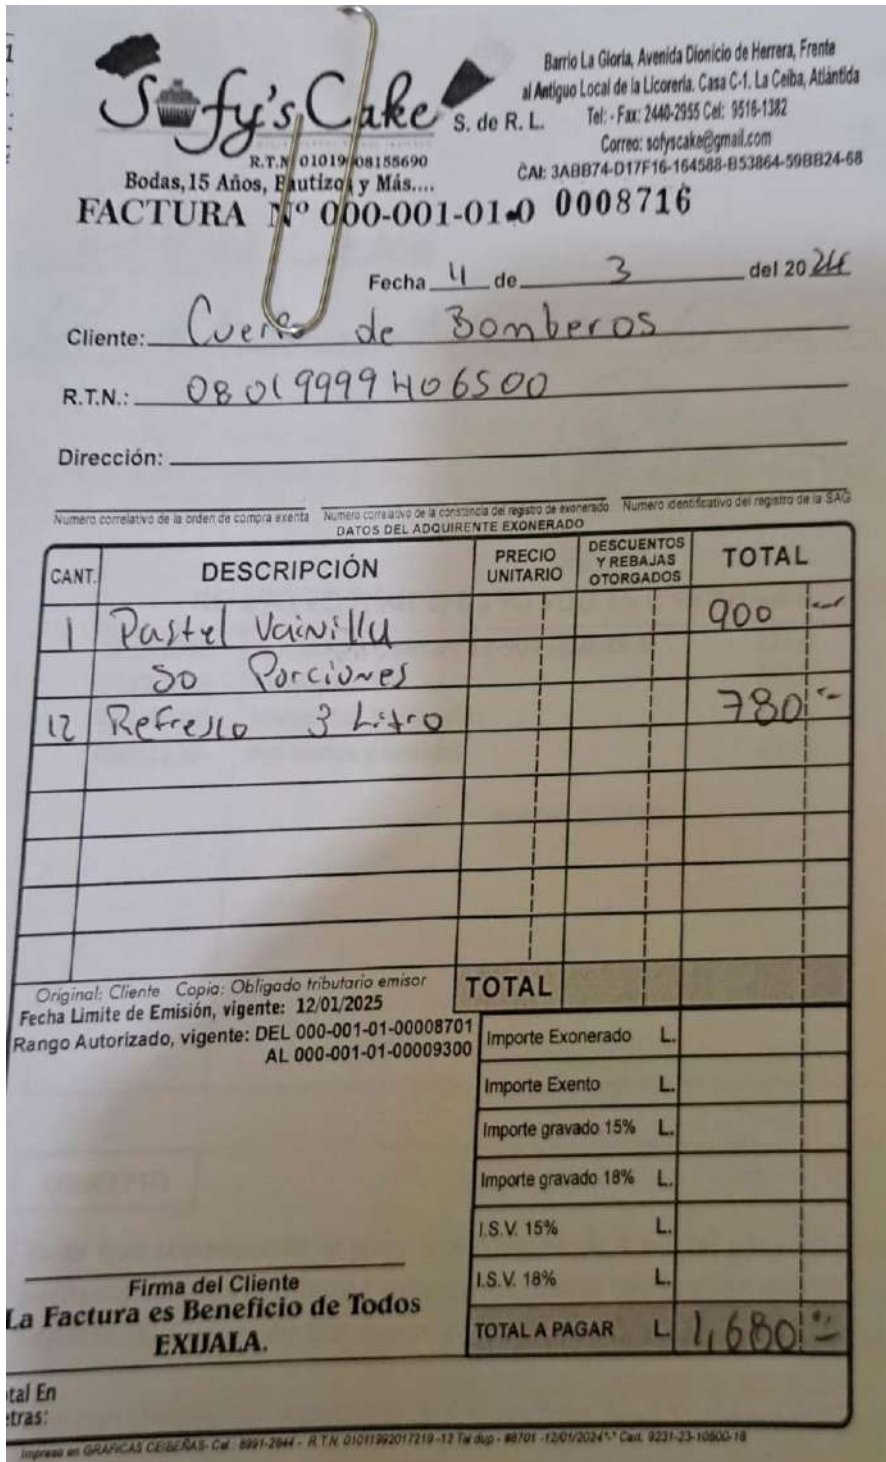 Sofy's Cake S. de R. L.
Barrio La Gloria, Avenida Dionicio de Herrera, Frente
al Antiguo Local de la Licorería. Casa C-1. La Ceiba, Atlántida
Tel: - Fax: 2440-2955 Cel: 9516-1382
Correo: sofyscake@gmail.com
CAI: 3ABB74-D17F16-164588-B53864-59BB24-68
R.T.N 01019008155690
Bodas, 15 Años, Bautizos y Más....
FACTURA Nº 000-001-01-0 0008716
Fecha 4 de 3 del 2024
Cliente: Cuerpo de Bomberos
R.T.N.: 08019999406500
Dirección:
Numero correlativo de la orden de compra exenta Numero correlativo de la constancia del registro de exonerado Numero identificativo del registro de la SAG
DATOS DEL ADQUIRENTE EXONERADO
CANT. DESCRIPCIÓN PRECIO UNITARIO DESCUENTOS Y REBAJAS OTORGADOS TOTAL
1 Pastel Vainilla 900
50 Porciones
12 Refresco 3 Litro 780
Original: Cliente Copia: Obligado tributario emisor
Fecha Limite de Emisión, vigente: 12/01/2025
Rango Autorizado, vigente: DEL 000-001-01-00008701
AL 000-001-01-00009300
TOTAL
Importe Exonerado L.
Importe Exento L.
Importe gravado 15% L.
Importe gravado 18% L.
I.S.V. 15% L.
I.S.V. 18% L.
TOTAL A PAGAR L. 1,680
Firma del Cliente
La Factura es Beneficio de Todos
EXIJALA.
tal En
etras:
Impreso en GRAFICAS CEIBEÑAS- Cel.: 8991-2644 - R.T.N. 01011992017219 -12 Tal dup - #8701 -12/01/2024 Cert. 9231-23-10800-18